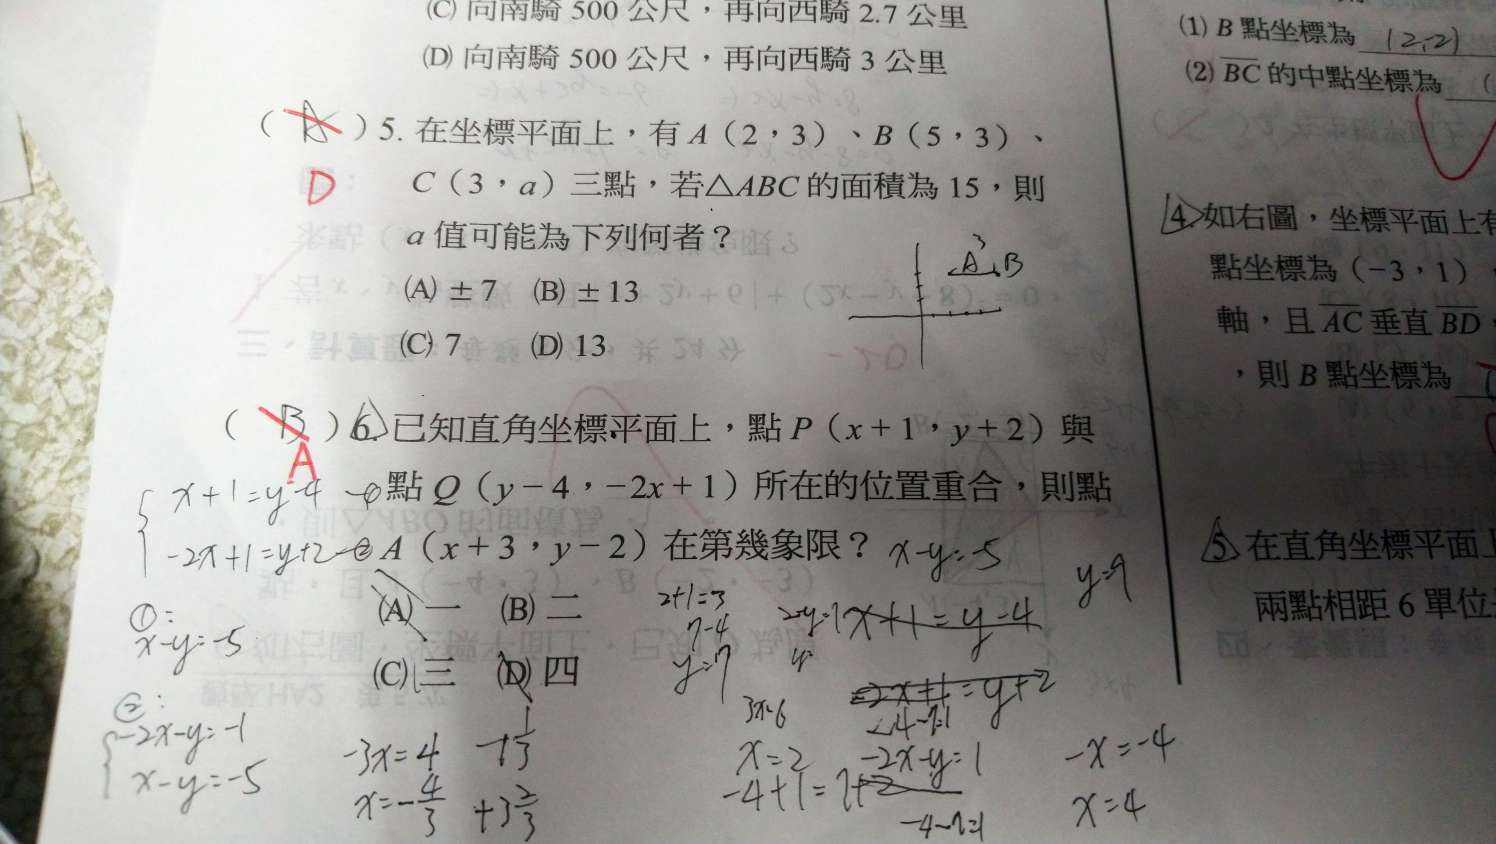 (C) 向南騎 500 公尺，再向西騎 2.7 公里
(D) 向南騎 500 公尺，再向西騎 3 公里
( A ) 5. 在坐標平面上，有 A（2，3）、B（5，3）、
D
C（3，a）三點，若△ABC 的面積為 15，則
a 值可能為下列何者？
(A) ±7 (B) ±13
(C) 7 (D) 13
3
A B
( B ) 6. 已知直角坐標平面上，點 P（x+1，y+2）與
A
點 Q（y－4，－2x+1）所在的位置重合，則點
A（x+3，y－2）在第幾象限？
(A) 一 (B) 二
(C) 三 (D) 四
x+1=y-4 -①
-2x+1=y+2-②
①:
x-y=-5
②:
-2x-y=-1
x-y=-5
-3x=4
x=-4/3
+3 2/3
x-y=-5
y=9
2+1=3
7-4
y=7
x+1=y-4
-2x+1=y+2
3x=6
x=2
-2x-y=1
-4+1=7+2
-x=-4
x=4
(1) B 點坐標為 (2,-2)
(2) BC 的中點坐標為 (
4 如右圖，坐標平面上有
點坐標為（－3，1）
軸，且 AC 垂直 BD
，則 B 點坐標為 (
5 在直角坐標平面上
兩點相距 6 單位